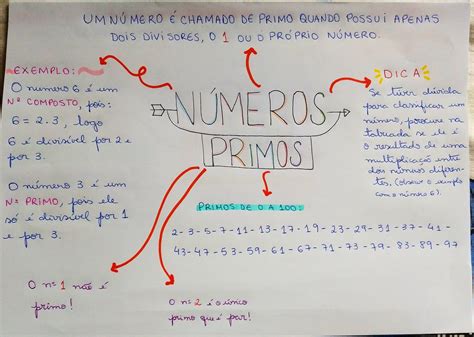 UM NÚMERO É CHAMADO DE PRIMO QUANDO POSSUI APENAS
DOIS DIVISORES, O 1 OU O PRÓPRIO NÚMERO.
EXEMPLO:
O número 6 é um
Nº COMPOSTO, pois:
6 = 2.3, logo
6 é divisível por 2 e
por 3.
O número 3 é um
Nº PRIMO, pois ele
só é divisível por 1
e por 3.
NÚMEROS
PRIMOS
DICA
Se tiver dúvida
para classificar um
número, procure na
tabuada se ele é
o resultado de uma
multiplicação entre
dois números diferen-
tes, (observe o exemplo
com o número 6).
PRIMOS DE 0 A 100:
2-3-5-7-11-13-17-19-23-31-37-41-
43-47-53-59-61-67-71-73-79-83-89-97
O nº 1 não é
primo!
O nº 2 é o único
primo que é par!